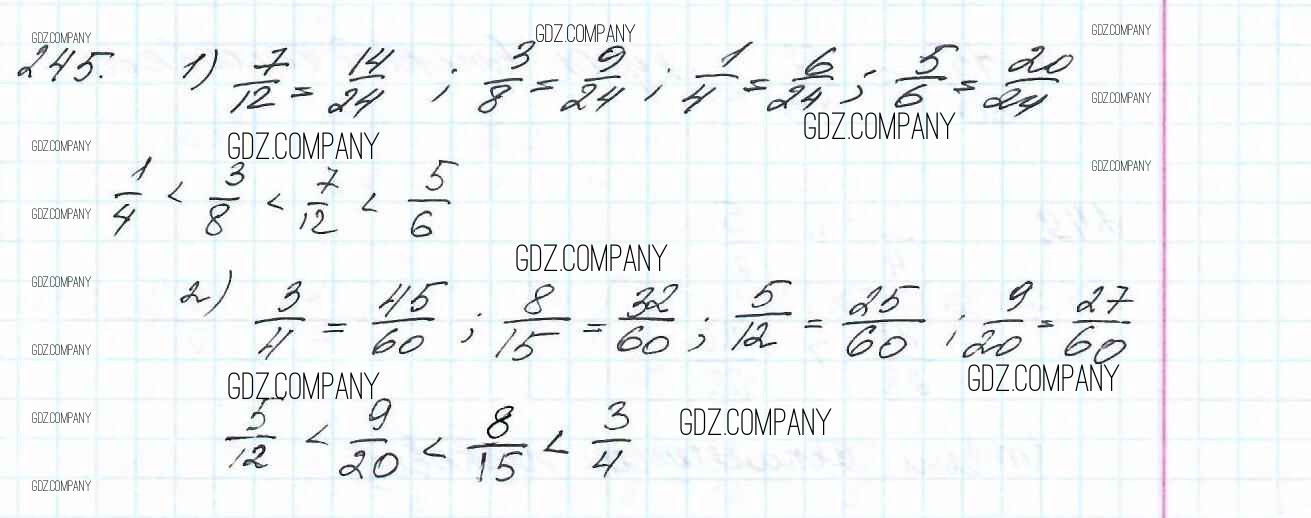 GDZ.COMPANY GDZ.COMPANY GDZ.COMPANY
245. 1) 7/12 = 14/24 ; 3/8 = 9/24 ; 1/4 = 6/24 ; 5/6 = 20/24
GDZ.COMPANY
GDZ.COMPANY
GDZ.COMPANY GDZ.COMPANY
GDZ.COMPANY
1/4 < 3/8 < 7/12 < 5/6
GDZ.COMPANY
GDZ.COMPANY
GDZ.COMPANY
2) 3/4 = 45/60 ; 8/15 = 32/60 ; 5/12 = 25/60 ; 9/20 = 27/60
GDZ.COMPANY
GDZ.COMPANY
GDZ.COMPANY GDZ.COMPANY
5/12 < 9/20 < 8/15 < 3/4
GDZ.COMPANY GDZ.COMPANY
GDZ.COMPANY